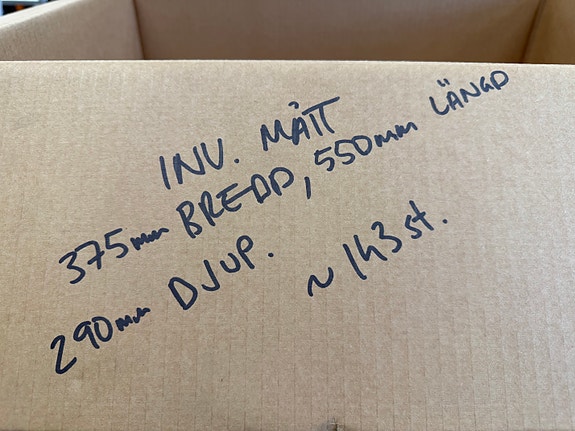 INV. MÅTT
375mm BREDD, 550mm LÄNGD
290mm DJUP.
~ 143 st.